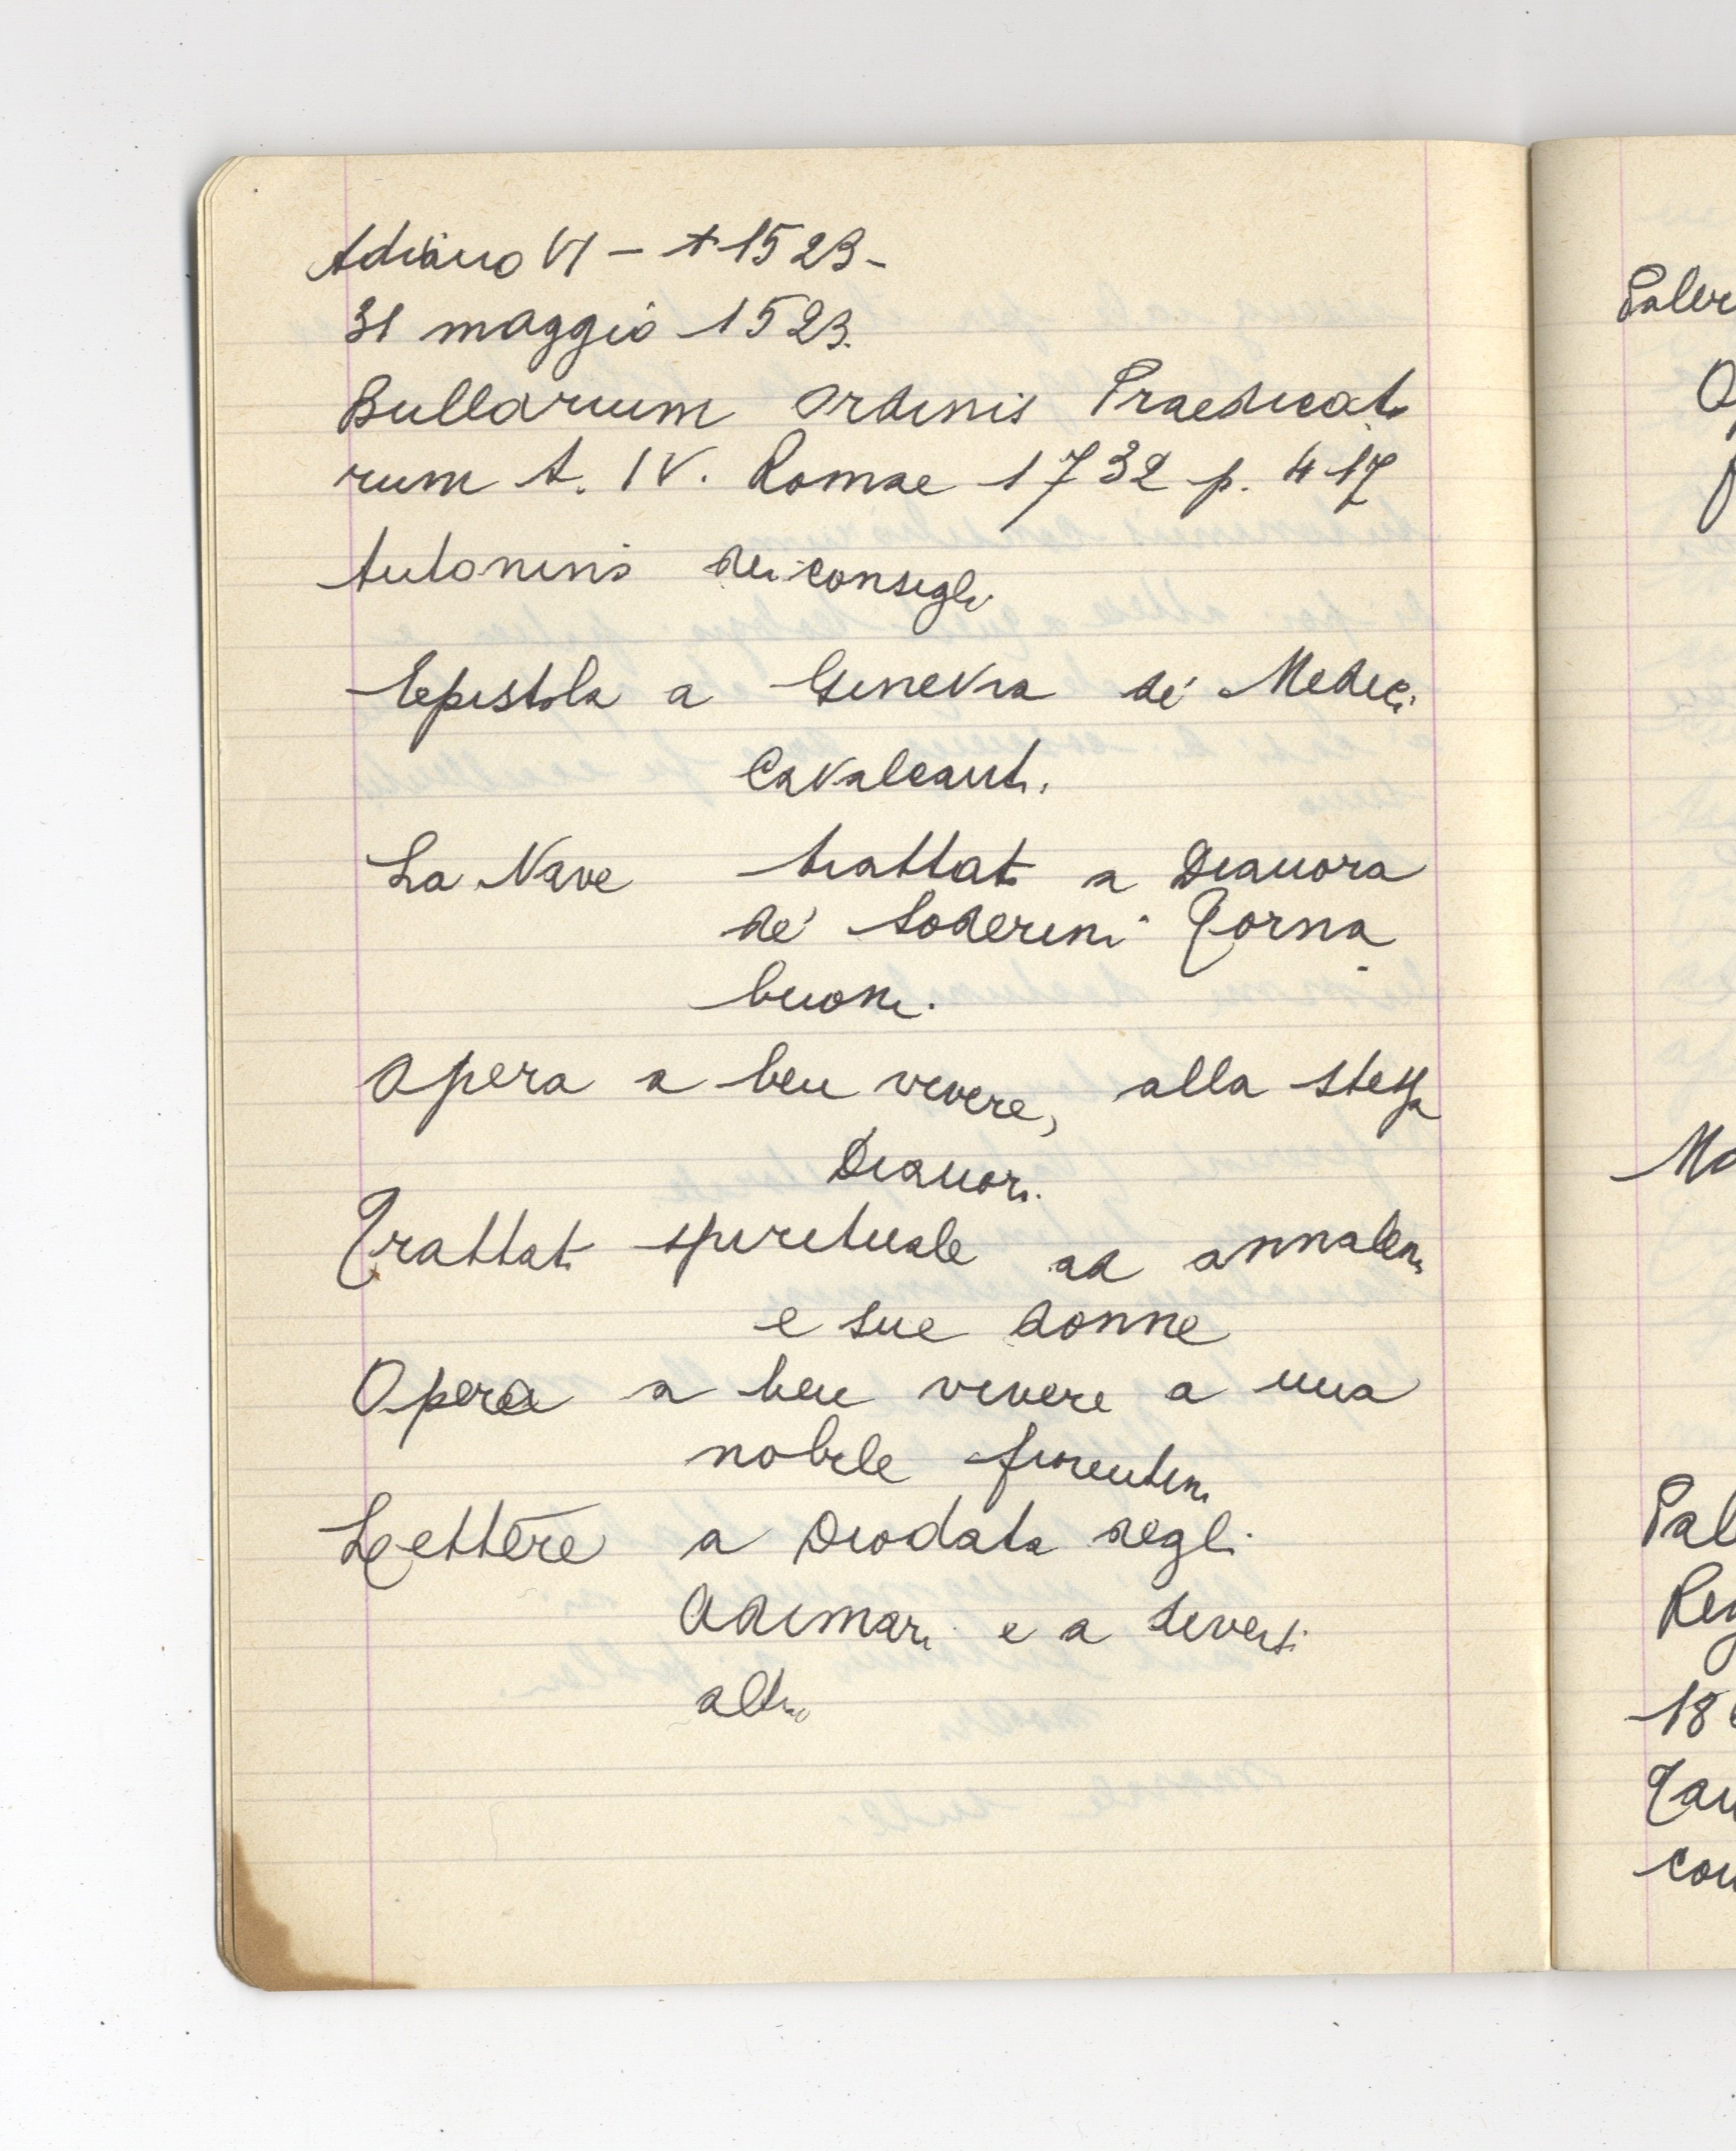 Adriano VI – † 1523 –
31 maggio 1523.
Bullarium Ordinis Praedicato
rum t. IV. Romae 1732 p. 417
Antonino dei consigli
Epistola a Ginevra de' Medici
Cavalcanti.
La Nave trattato a Dianora
de' Soderini Torna
buoni.
Opera a ben vivere, alla stessa
Dianora.
Trattato spirituale ad Annalena
e sue donne
Opera a ben vivere a una
nobile fiorentina
Lettere a Diodata degli
Adimari e a diversi
altri
Paler
O
Ma
Pal
Reg
18
Tau
con